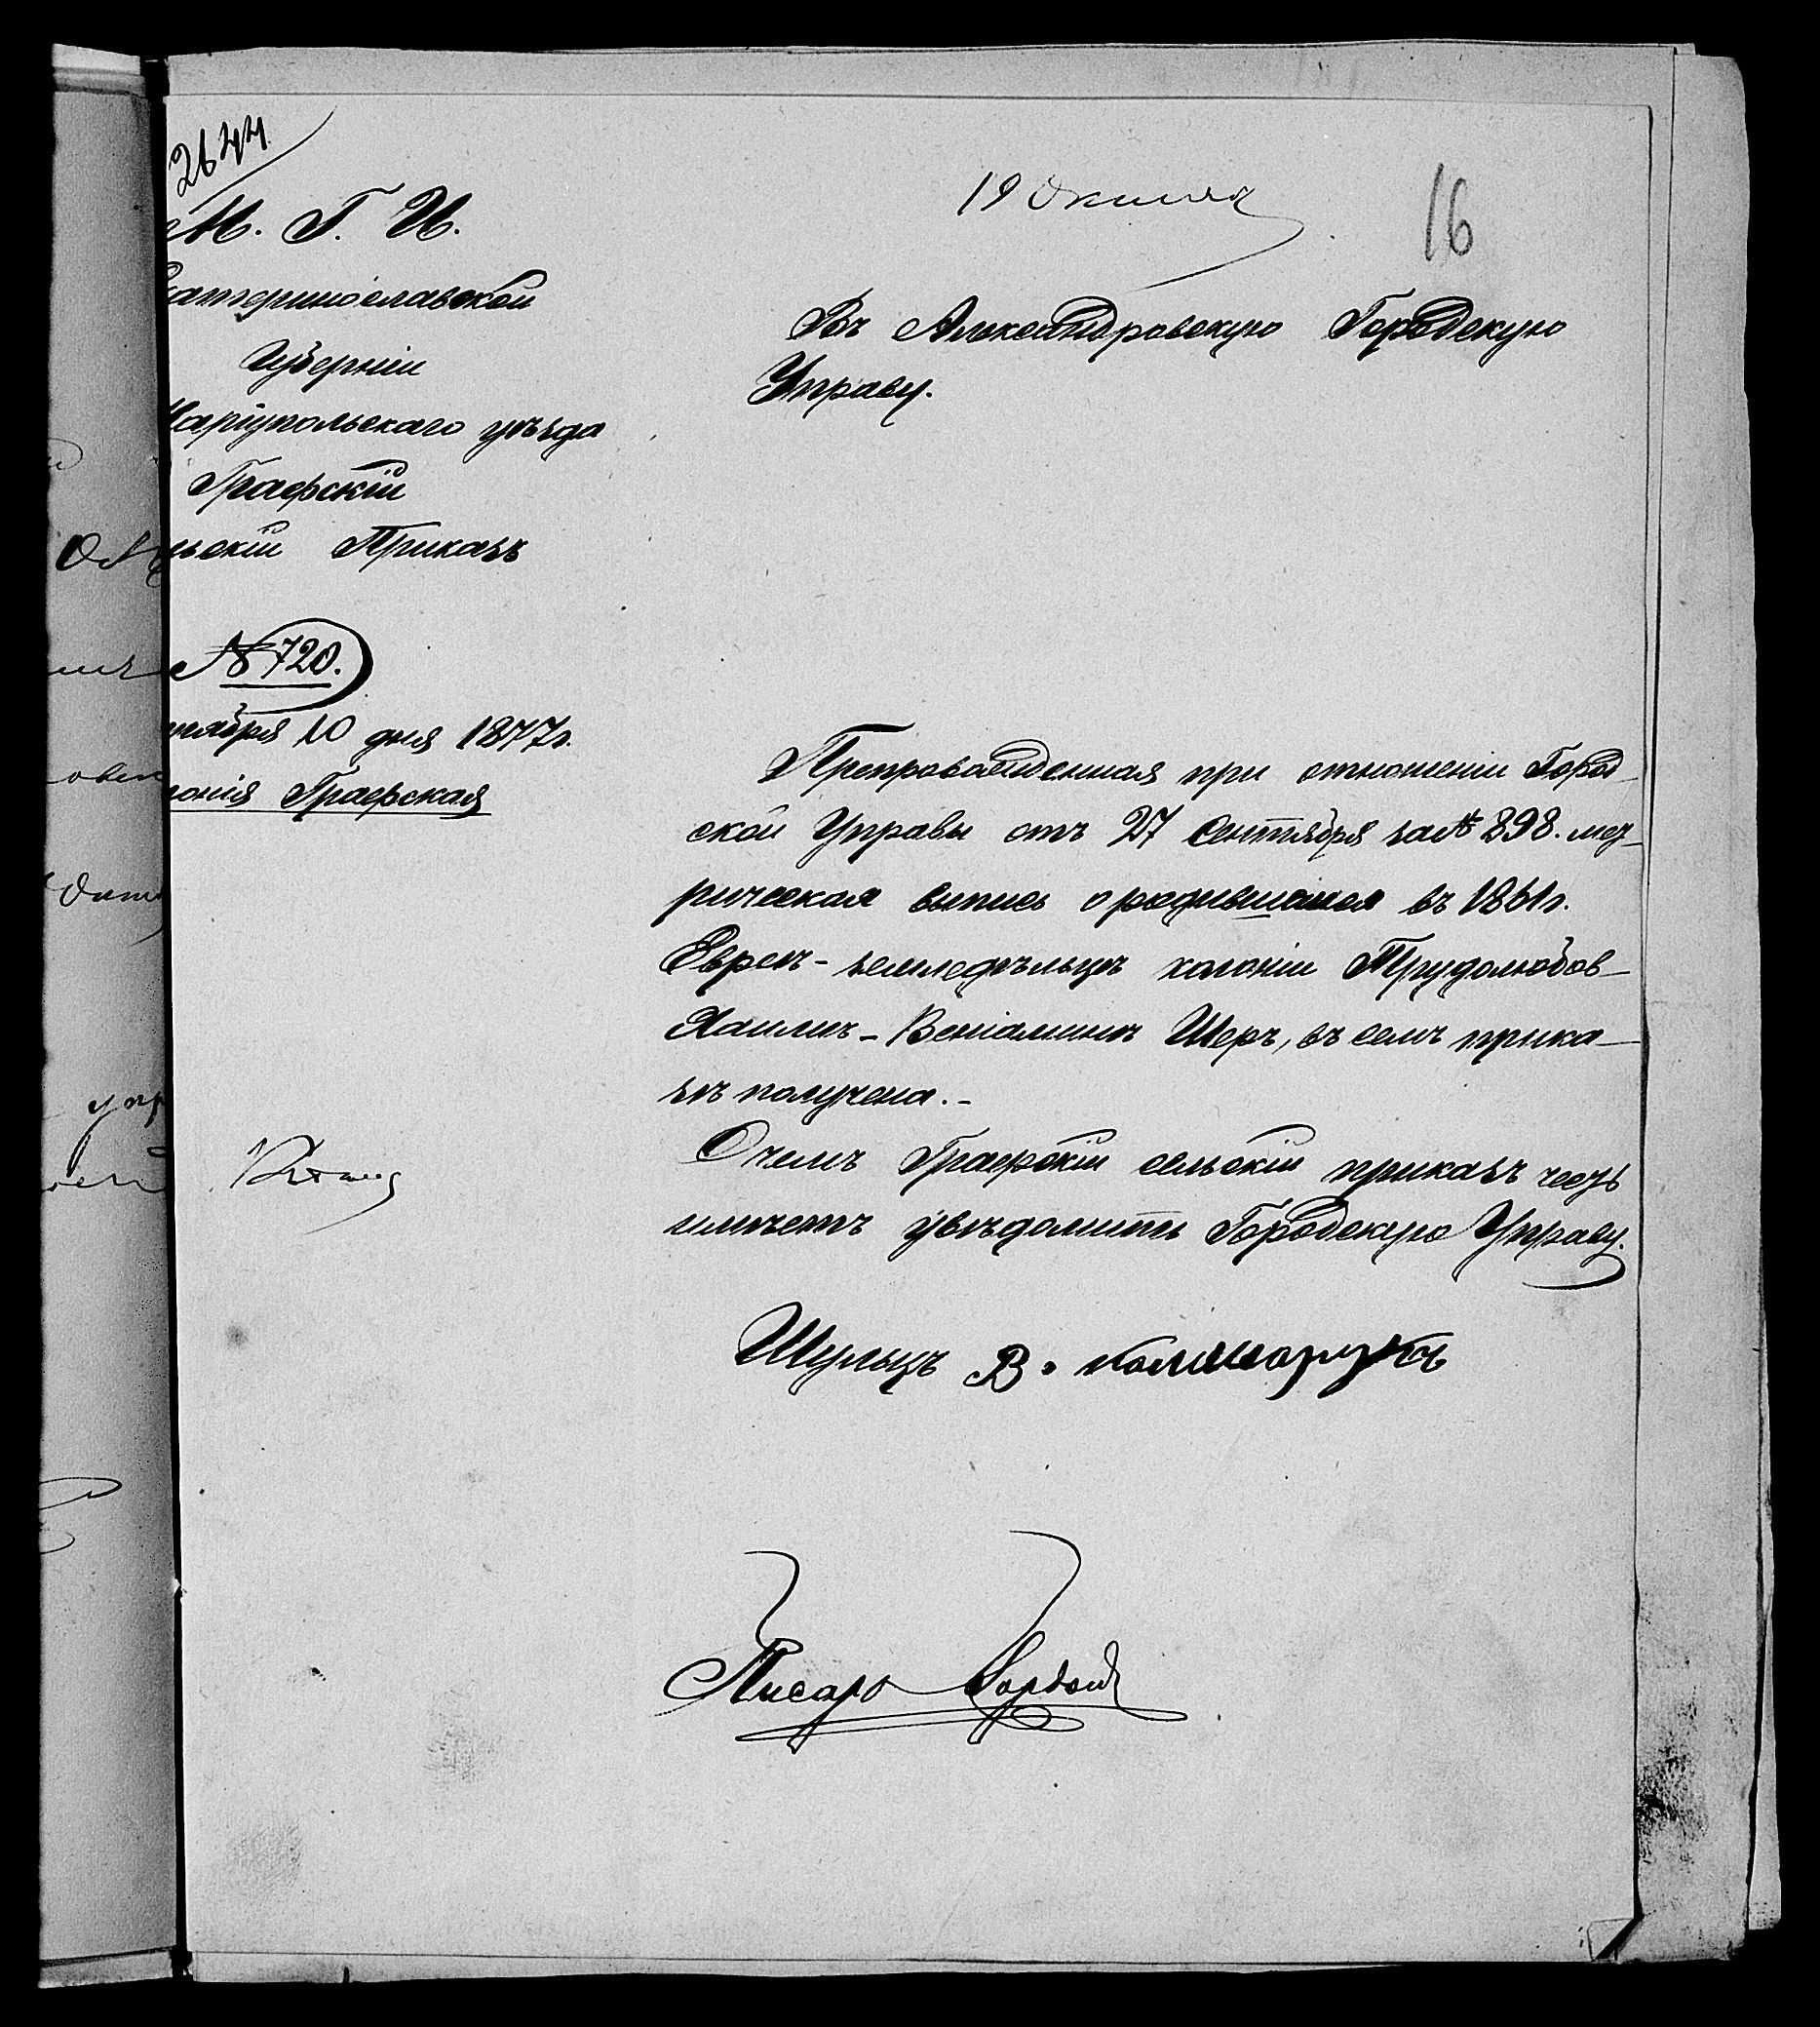 2644
М. Г. И.
Екатеринославской
Губерніи
Маріупольскаго уѣзда
Графскій
Сельскій Приказъ
№ 720.
октября 10 дня 1877г.
Колонія Графская
19 Октября
16
Въ Александровскую Городскую
Управу.
Препровожденная при отношеніи Город
ской Управы отъ 27 Сентября за № 898. мет-
рическая выпись о родившемся въ 1861г.
Евреѣ-земледѣльцѣ колоніи Трудолюбов-
Хаимъ-Веніаминъ Шеръ, въ семъ прика-
зѣ получена.-
О чемъ Графскій сельскій приказъ честь
имѣетъ увѣдомить Городскую Управу.
Шульцъ В.
Писарь